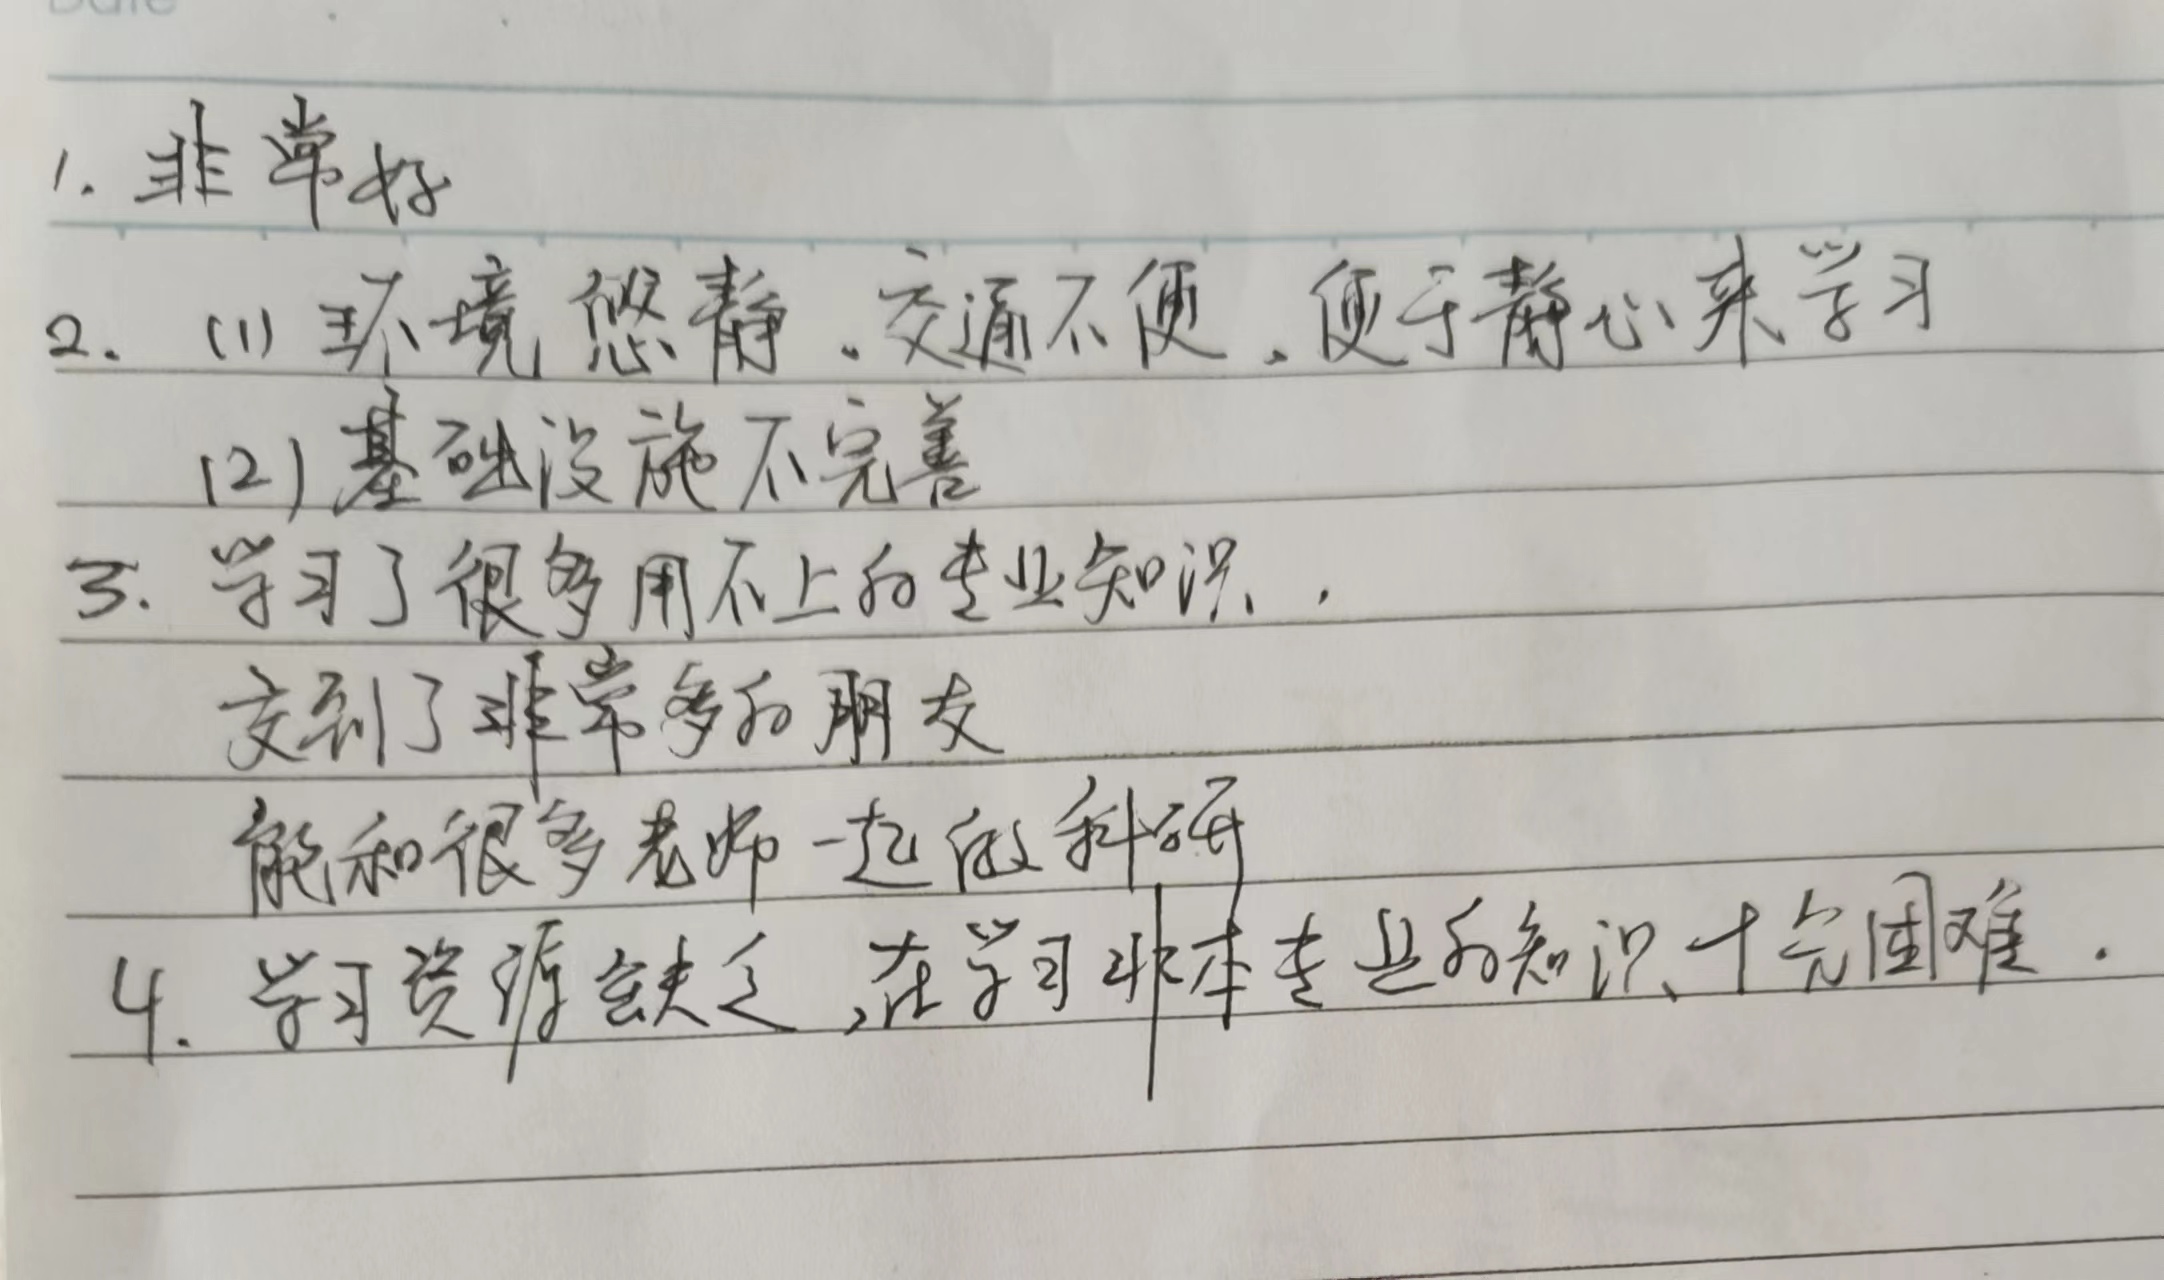 Date
1. 非常好
2. (1) 环境悠静、交通不便、便于静心来学习
(2) 基础设施不完善
3. 学习了很多用不上的专业知识.
交到了非常多的朋友
能和很多老师一起做科研
4. 学习资源缺乏,在学习非本专业的知识十分困难.